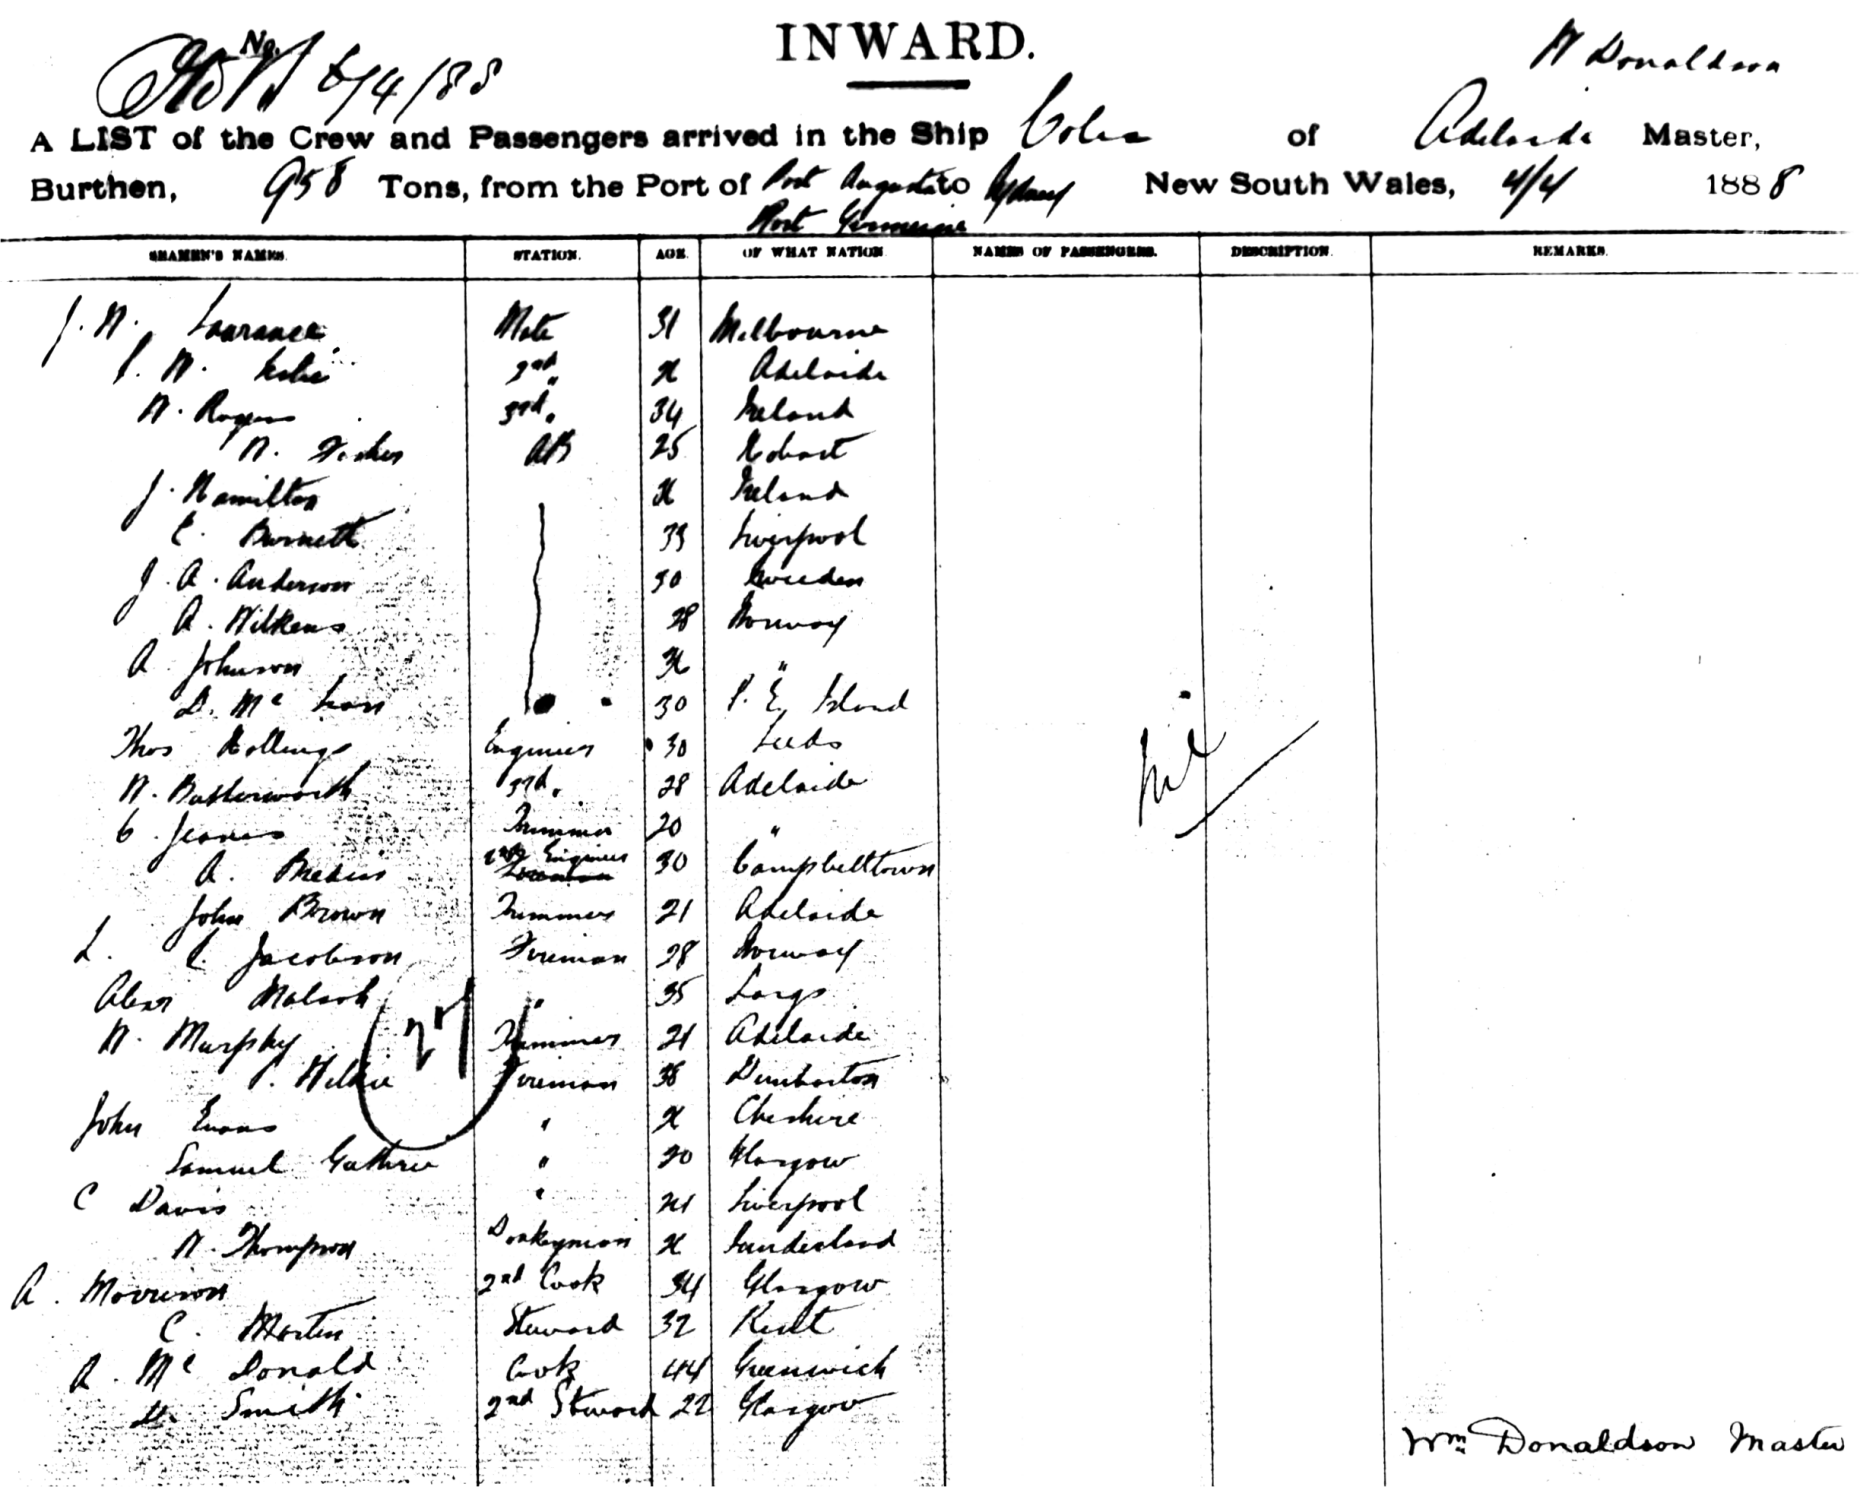 INWARD.
No. 6/4/88
W Donaldson
A LIST of the Crew and Passengers arrived in the Ship of Adelaide Master,
Burthen, 958 Tons, from the Port of Port Augusta to Sydney New South Wales, 4/4 1888
Port Germeine
SEAMEN'S NAMES. STATION. AGE. OF WHAT NATION NAMES OF PASSENGERS. DESCRIPTION. REMARKS.
J. W. Lawrance Mate 31 Melbourne
W. Leslie 2nd " Adelaide
W. Rogers 3rd " 34 Ireland
W. Fisher AB 25 Hobart
J. Hamilton Ireland
C. Burnett 33 Liverpool
J. A. Anderson 30 Sweeden
A. Wilkens 28 Norway
A. Johnson "
D. Mc Lean 30 P. E. Island
Thos Hollings Engineer 30 Leeds
W. Butterworth 3rd " 28 Adelaide
C. Jeanes Trimmer 20 "
A. 2nd Engineer 30 Campbelltown
John Brown Trimmer 21 Adelaide
L. C. Jacobson Fireman 28 Norway
Alexr " 35 Largs
W. Murphy Trimmer 21 Adelaide
27
P. Wilkie Fireman 38 Dumbarton
John Evans " Cheshire
Samuel Guthrie " 20 Glasgow
C Davis " 24 Liverpool
W. Thompson Donkeyman Sunderland
A. Morrison 2nd Cook 34 Glasgow
C. Martin Steward 32 Kent
A. Mc Donald Cook 44 Greenwich
Smith 2nd Steward 22 Glasgow
Nil
Wm Donaldson Master